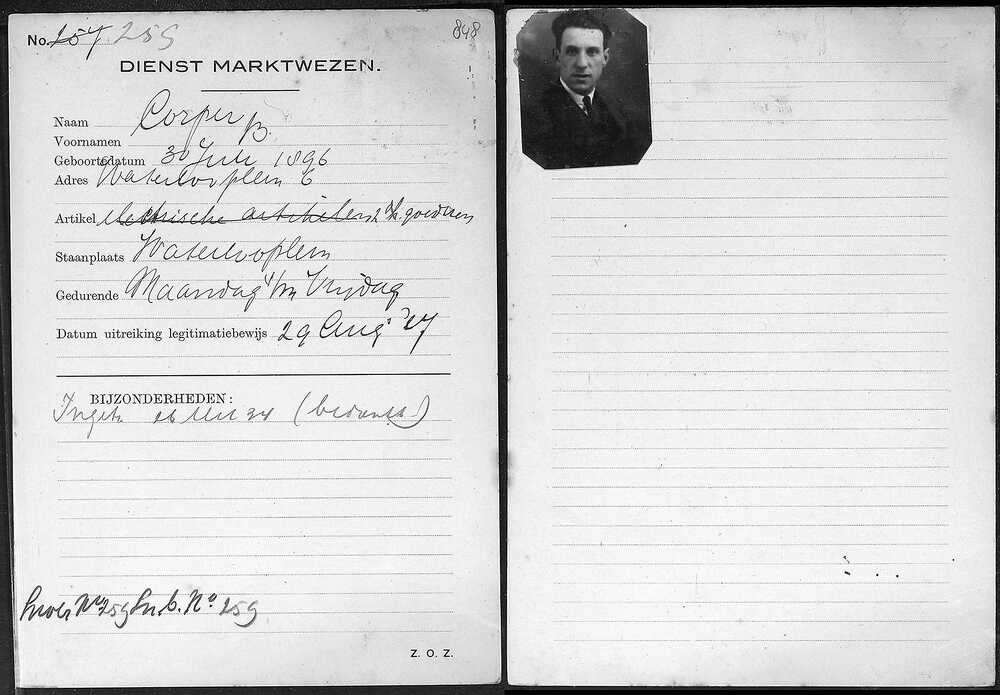 No. 257 259
848
DIENST MARKTWEZEN.
Naam Corper
Voornamen B.
Geboortedatum 30 Juli 1896
Adres Waterlooplein 6
Artikel electrische artikelen 2e h. goederen
Staanplaats Waterlooplein
Gedurende Maandag t/m Vrijdag
Datum uitreiking legitimatiebewijs 29 Aug. '27
BIJZONDERHEDEN:
Ingetr. (bedankt)
No 259 No. 259
Z. O. Z.